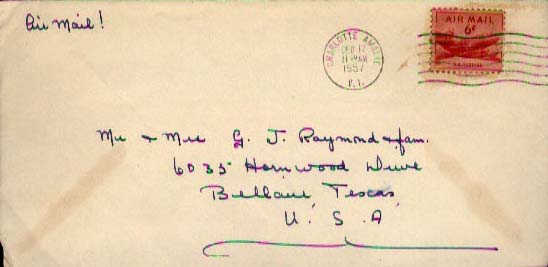 Air Mail!
CHARLOTTE AMALIE
17
11 AM
1957
V.I.
AIR MAIL
6¢
Mr + Mrs G. J. Raymond + fam.
6035 Hornwood Drive
Bellaire, Texas,
U. S. A